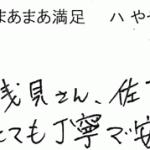 まあまあ満足 ハ
浅見さん、佐
ても丁寧で安